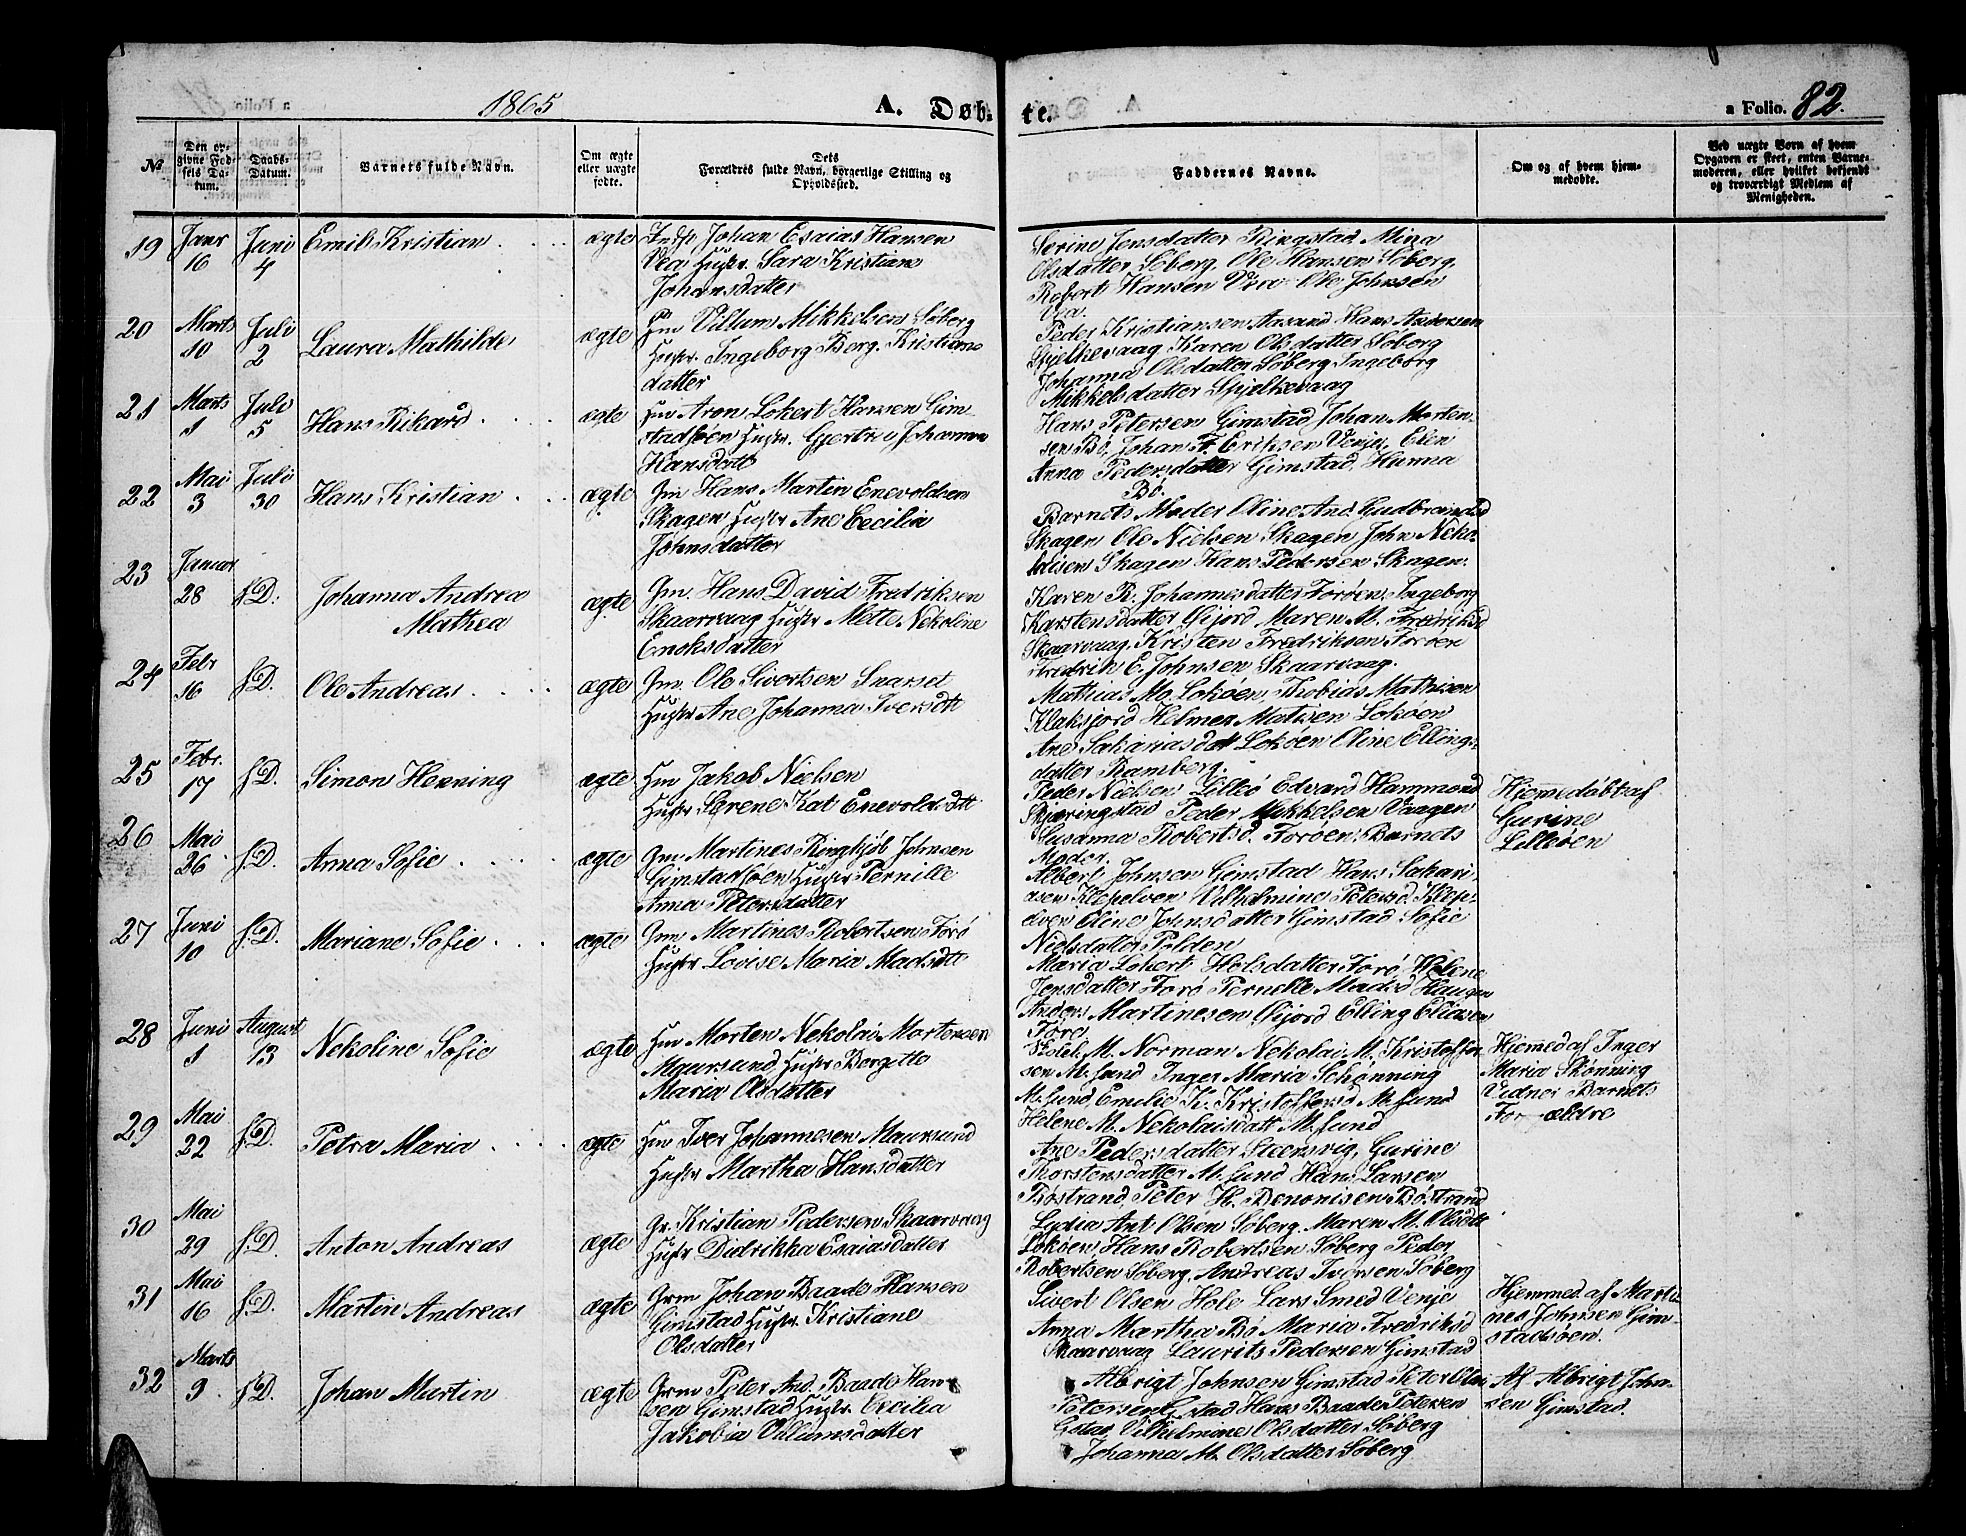 1865
A. Døb- te.
a Folio. 82.
№
Den op-
givne Fød-
sels Da-
tum.
Daabs-
Datum.
Barnets fulde Navn.
Om ægte
eller uægte
fødte.
Dets
Forældres fulde Navn, borgerlige Stilling og
Opholdssted.
Faddernes Navne.
Om og af hvem hjem-
medøbte.
Ved uægte Børn af hvem
Opgaven er skeet, enten Barne-
moderen, eller hvilket bekjendt
og troværdigt Medlem af
Menigheden.
19
Janr
16
Juni
4
Emil Kristian
ægte
Johan Esaias Hansen
Vea Hustr. Sara Kristiane
Johansdatter
Serine Jensdatter Ringstad Mina
Olsdatter Søberg, Ole Hansen Søberg,
Robert Hansen Vea Ole Johnsen
Vea.
20
Marts
10
Juli
2
Laura Mathilde
ægte
Hm Villum Mikkelsen Søberg
Hustr. Ingeborg Berg. Kristians
datter
Peder Kristiansen Aasand Hans Andersen
Spjelkevaag Karen Olsdatter Søberg
Johanna Olsdatter Søberg Ingeborg
Mikkelsdatter Spjelkevaag
21
Marts
1
Juli
5
Hans Rikard
ægte
Hm Aron Lokert Hansen Gim-
stadsøen Hustr. Gjertru Johanna
Hansdatt
Hans Petersen Gimstad, Johan Morten-
sen Bø, Johan F. Eriksen Venje, Elen
Anna Pedersdatter Gimstad, Hanna
Bø.
22
Mai
3
Juli
30
Hans Kristian
ægte
Gm Hans Martin Enevoldsen
Skagen Hustr Ane Cecilia
Johnsdatter
Barnets Moder Oline And. Gudbrandsd
Skagen Ole Nielsen Skagen John Neko-
laisen Skagen Hans Pedersen Skagen.
23
Januar
28
s.D.
Johanna Andrea
Mathea
ægte
Gm. Hans David Fredriksen
Skaarvaag Hustr Mette Nekoline
Enoksdatter
Karen R. Johannesdatter Forøen, Ingeborg
Karstensdatter Gijord Maren M. Fredriksd
Skaarvaag, Kristen Fredriksen Forøen
Fredrik E. Johnsen Skaarvaag.
24
Febr
16
s.D.
Ole Andreas
ægte
Gm. Ole Sivertsen Snarset
Hustr Ane Johanna Iversdtt
Mathias Mo. Lokøen Thobias Mathisen
Klaksjord Helmer Matisen Lokøen
Ane Sakariasdatt Lokøen Oline Ellings-
datter Ramberg.
25
Febr.
17
s.D.
Simon Henning
ægte
Hm Jakob Nielsen
Hustr Serene Kat Enevoldsdtt
Peder Nielsen Lilleø Edvard Hammond
Skjæringstad Peder Mikkelsen Vaagen
Susanna Robertsd. Forøen, Barnets
Moder.
Hjemedøbt af
Gurine
Lilleøen
26
Mai
26
s.D.
Anna Sofie
ægte
Gm Martines Ringkjøb Johnsen
Gimstadsøen Hustr Pernille
Anna Petersdatter
Albert Johnsen Gimstad Hans Sakari-
asen Klepelven Vilhelmine Petersd. Klep-
elven Oline Johnsdatter Gimstad Sofie
Nielsdatter Polden
27
Juni
10
s.D.
Mariane Sofie
ægte
Gm Martines Robertsen Forø
Hustr Lovise Maria Madsdtt
Maria Lokert Holsdatter Forø, Helene
Jensdatter Forø Pernelle Madsd Haugen
Anders Martinesen Gijord Elling Eliasen
Fore
28
Juni
1
August
13
Nekoline Sofie
ægte
Hm Morten Nekolai Mortensen
Maursund Hustr Bergitte
Maria Olsdatter
M. Norman Nekolai M. Kristoffer-
sen M.sund Inger Maria Schønning
M.sund, Emelie K. Kristoffersd M.sund
Helene M. Nekolaisdatt M.sund
Hjemed af Inger
Maria Skønning
Vidner Barnets
Forældre
29
Mai
22
s.D.
Petra Maria
ægte
Hm Iver Johannesen Maursund
Hustr Martha Hansdatter
Ane Pedersdatter Steensvig, Gurine
Thorstensdatter M.sund Hans Larsen
Bøstrand Peter H. Benonisen Bøstrand
30
Mai
29
s.D.
Anton Andreas
ægte
Gr. Kristian Pedersen Skaarvaag
Hustr Didrikka Esaiasdatter
Lydia Ant Olsen Søberg. Maren M. Olsdtt
Lokøen, Hans Robertsen Søberg Peder
Robertsen Søberg, Andreas Iversen Søberg
31
Mai
16
s.D.
Martin Andreas
ægte
Grm Johan Baade Hansen
Gimstad Hustr. Kristiane
Olsdatter
Sivert Olsen Hole Lars Smed Venje
Anna Martha Bø Maria Fredriksd
Skaarvaag Laurits Pedersen Gimstad
Hjemmed af Marti-
nes Johnsen Gim-
stadsøen.
32
Marts
9
s.D.
Johan Martin
ægte
Grm Peter And. Baade Han-
sen Gimstad Hustr. Cecilia
Jakobia Villumsdatter
Albrigt Johnsen Gimstad Peter Olai
Petersen G.stad Hans Baade Petersen
G.stad Vilhelmine Olsdatter Søberg
Johanna M. Olsdatter Søberg
Af Albrigt John-
sen Gimstad.